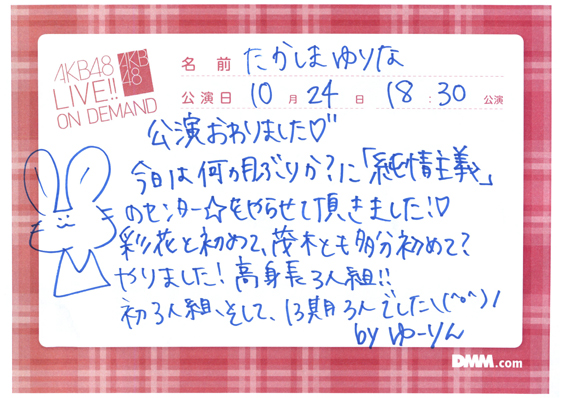 AKB48
LIVE!!
ON DEMAND
AKB
48
名前 たかしまゆりな
公演日 10月24日 18:30公演
公演おわりました♡
今日は何ヵ月ぶりか?に「純情主義」
のセンター☆をやらせて頂きました!♡
彩花と初めて、茂木とも多分初めて?
やりました!高身長3人組!!
初3人組、そして、13期3人でした\(^o^)/
by ゆーりん
DMM.com